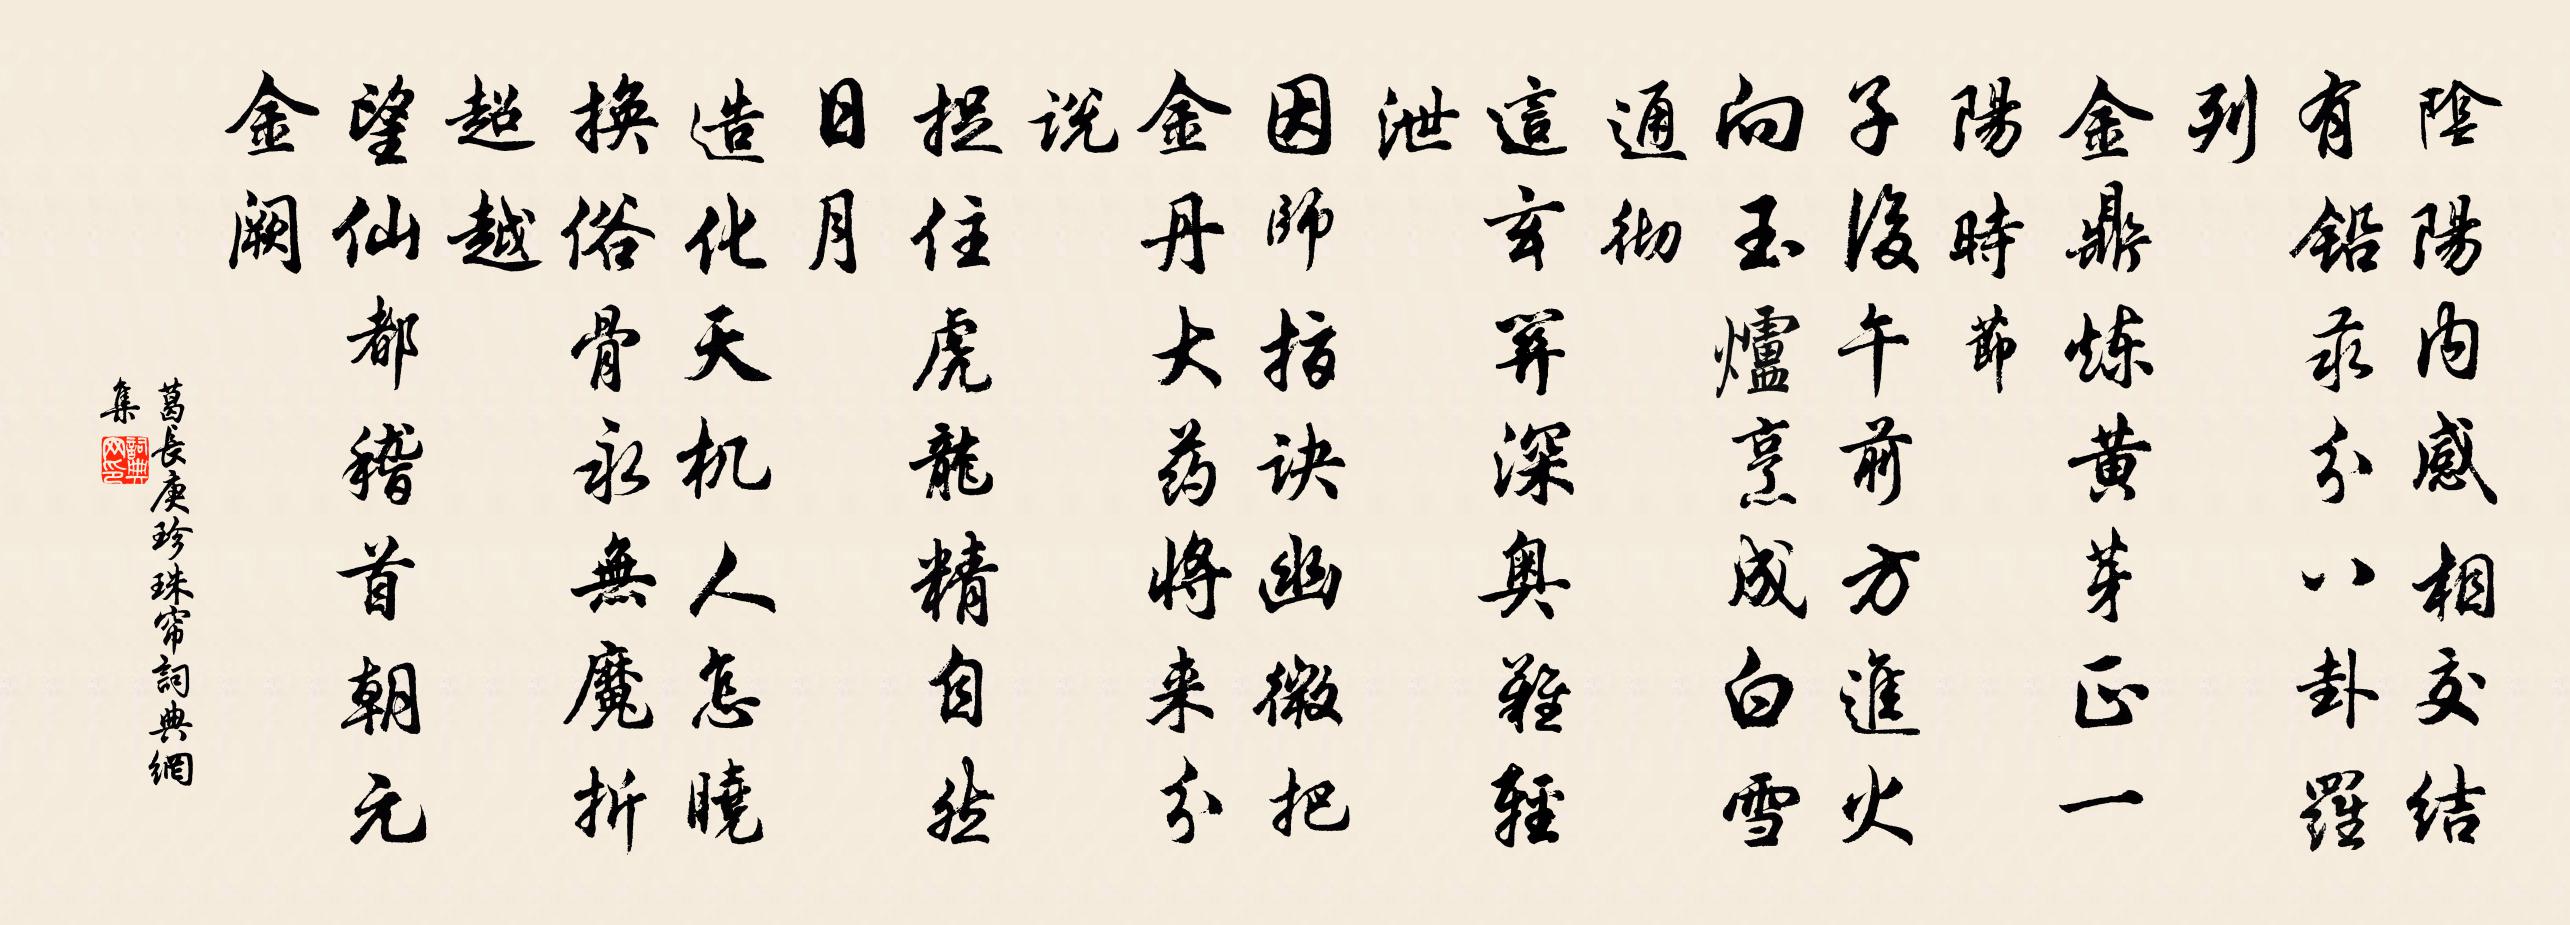 陰陽内感相交結
有鉛汞分八卦羅
列
金鼎炼黄芽正一
陽時節
子後午前方進火
向玉爐烹成白雪
通彻
這玄關深奥難輕
泄
因師指訣幽微把
金丹大药將来分
说
捉住虎龍精自然
日月
造化天机人怎曉
換俗骨永無魔折
超越
望仙都稽首朝元
金阙
葛長庚珍珠帘詞典網
集
詞典
网印